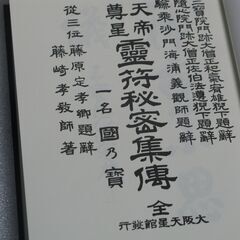 三寳院門跡大僧正和氣宥雄猊下題辭
隨心院門跡大僧正佐伯法遵猊下題辭
驅烏沙門海浦義觀師題辭
天帝尊星
靈符秘密集傳 全
一名 國乃寶
從三位 藤原定孝卿題辭
藤崎孝敎師著
大阪天星館發行